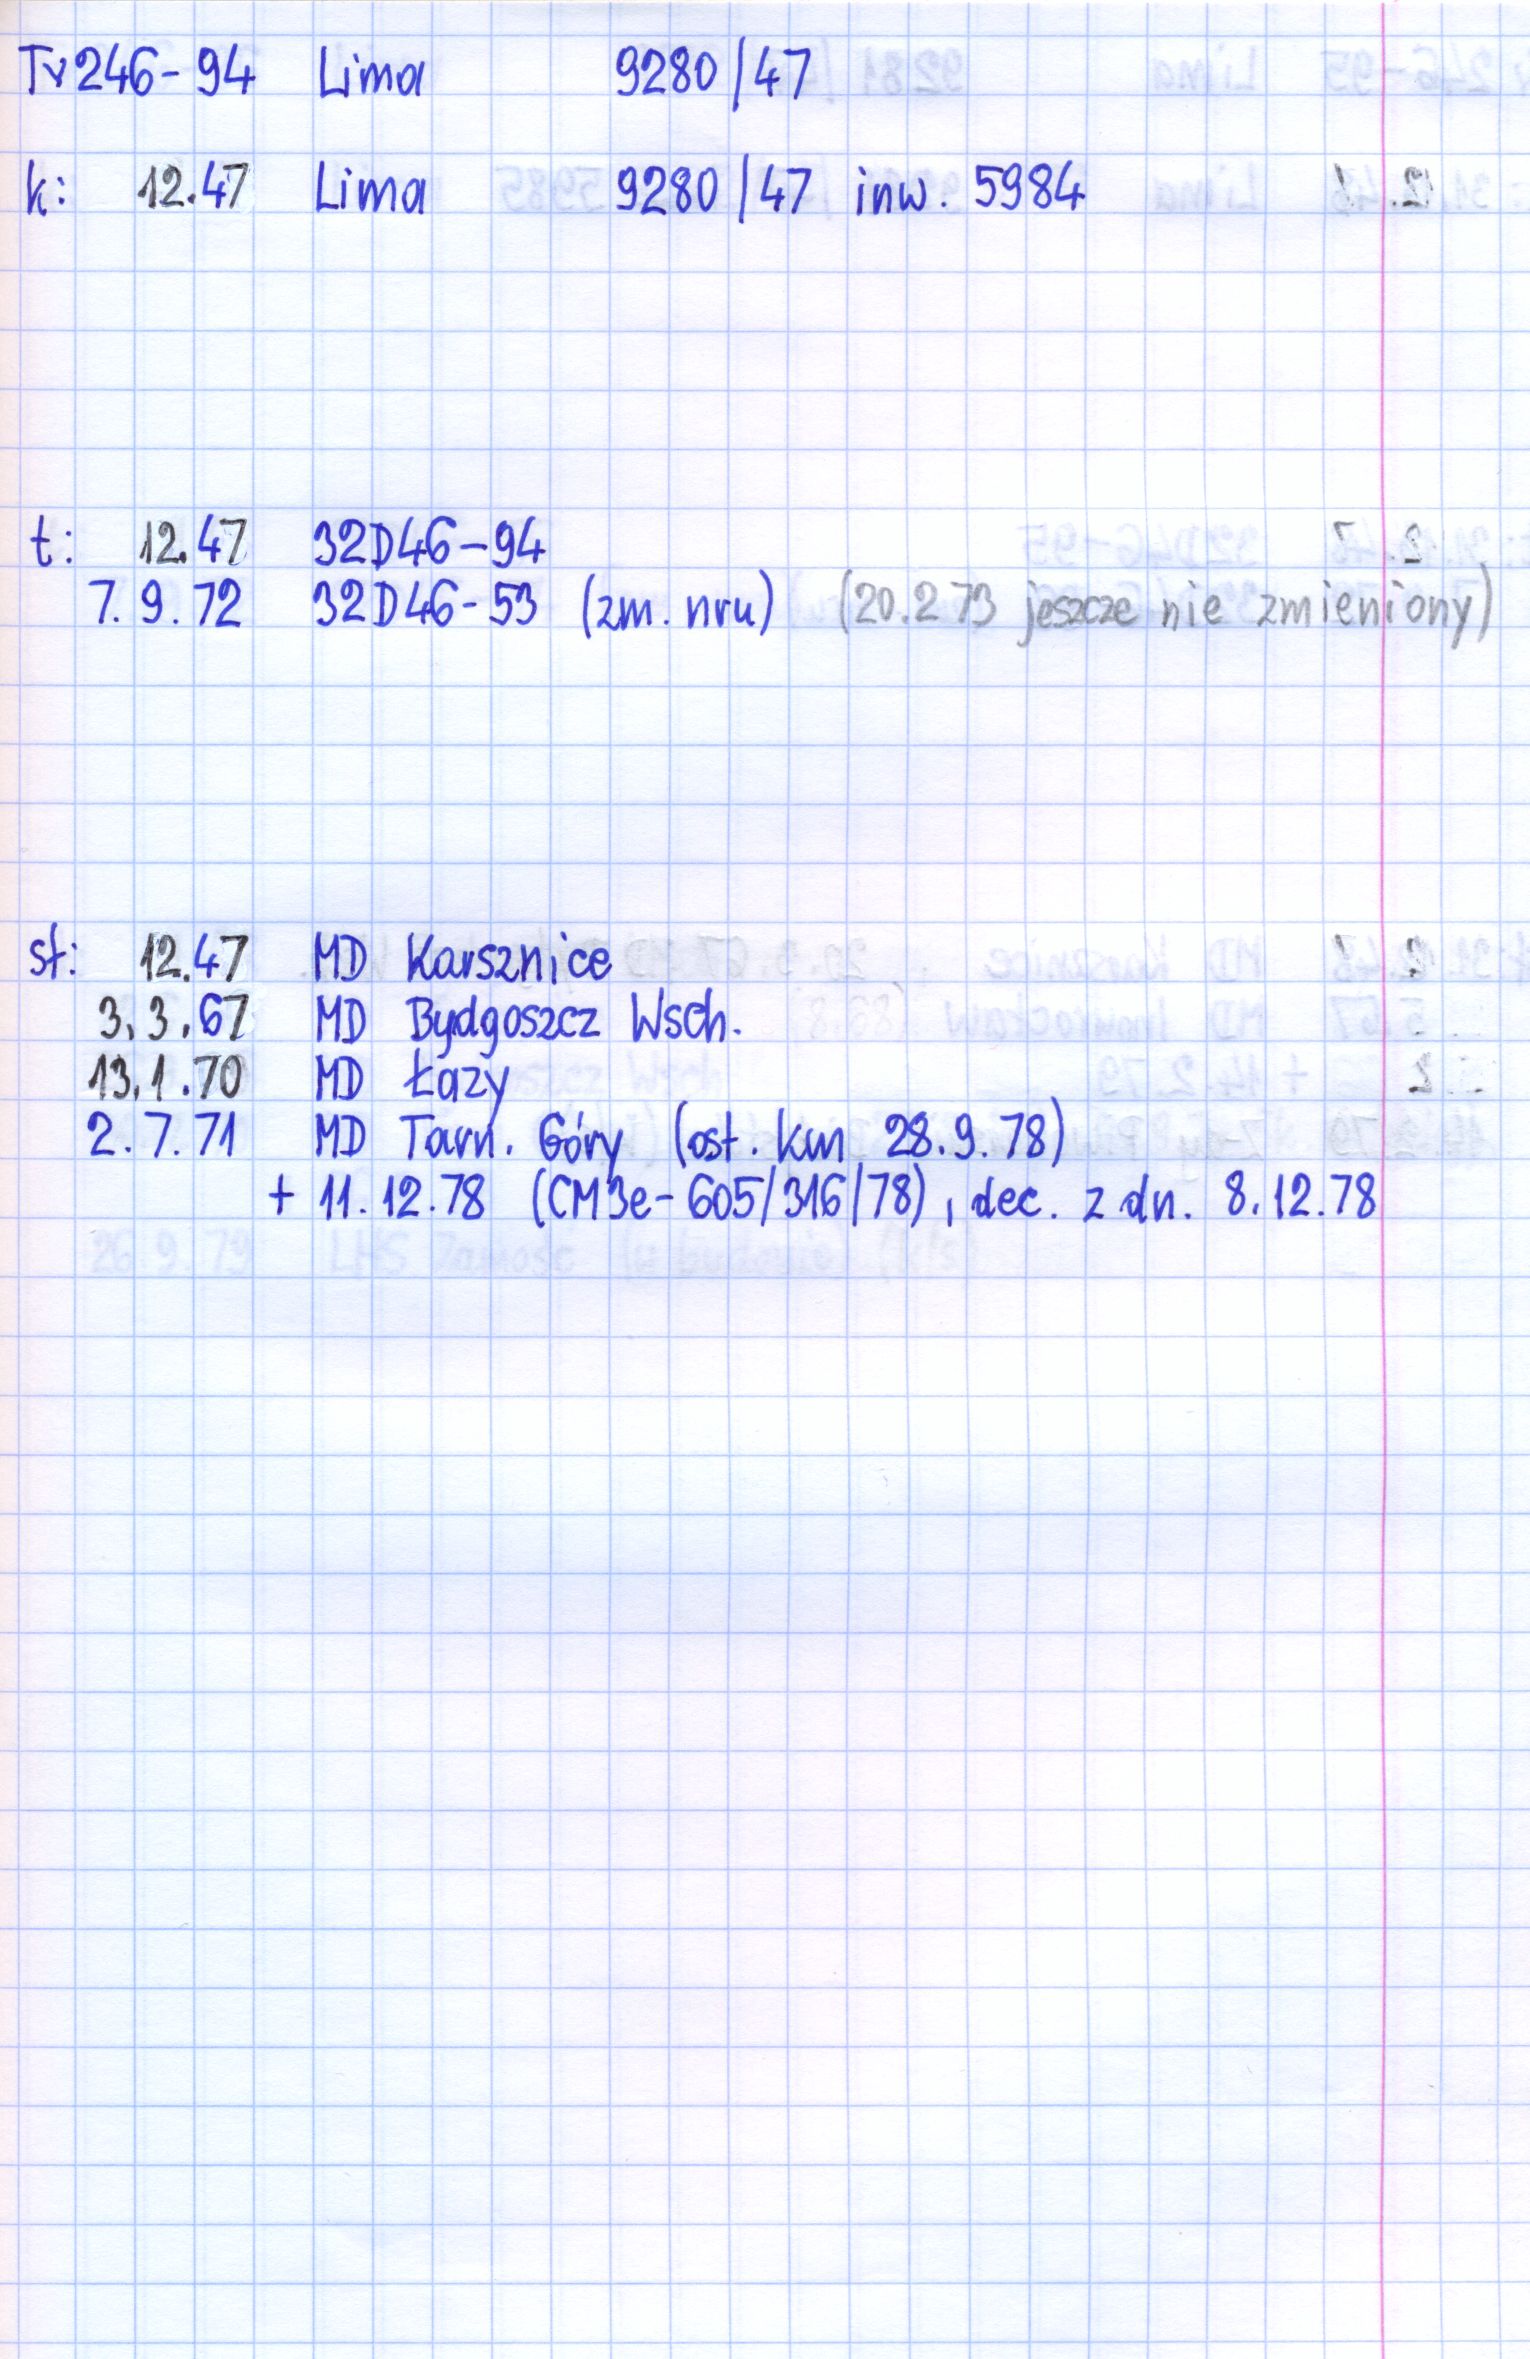 Tr 246-94 Lima 9280/47
k: 12.47 Lima 9280/47 inw. 5984
t: 12.47 32D46-94
7.9.72 32D46-53 (zm. nru) (20.2 73 jeszcze nie zmieniony)
st: 12.47 MD Karsznice
3.3.67 MD Bydgoszcz Wsch.
13.1.70 MD Łazy
2.7.71 MD Tarn. Góry (ost. km 28.9.78)
+ 11.12.78 (CM3e-605/316/78), dec. z dn. 8.12.78